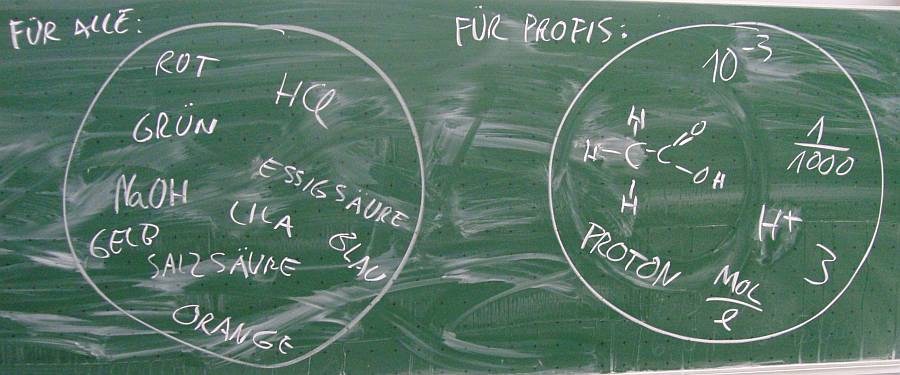 FÜR ALLE:
ROT
HCl
GRÜN
NaOH
ESSIGSÄURE
LILA
GELB
BLAU
SALZSÄURE
ORANGE
FÜR PROFIS:
10⁻³
H
H-C-C
O
OH
H
1
1000
H+
PROTON
3
MOL
l